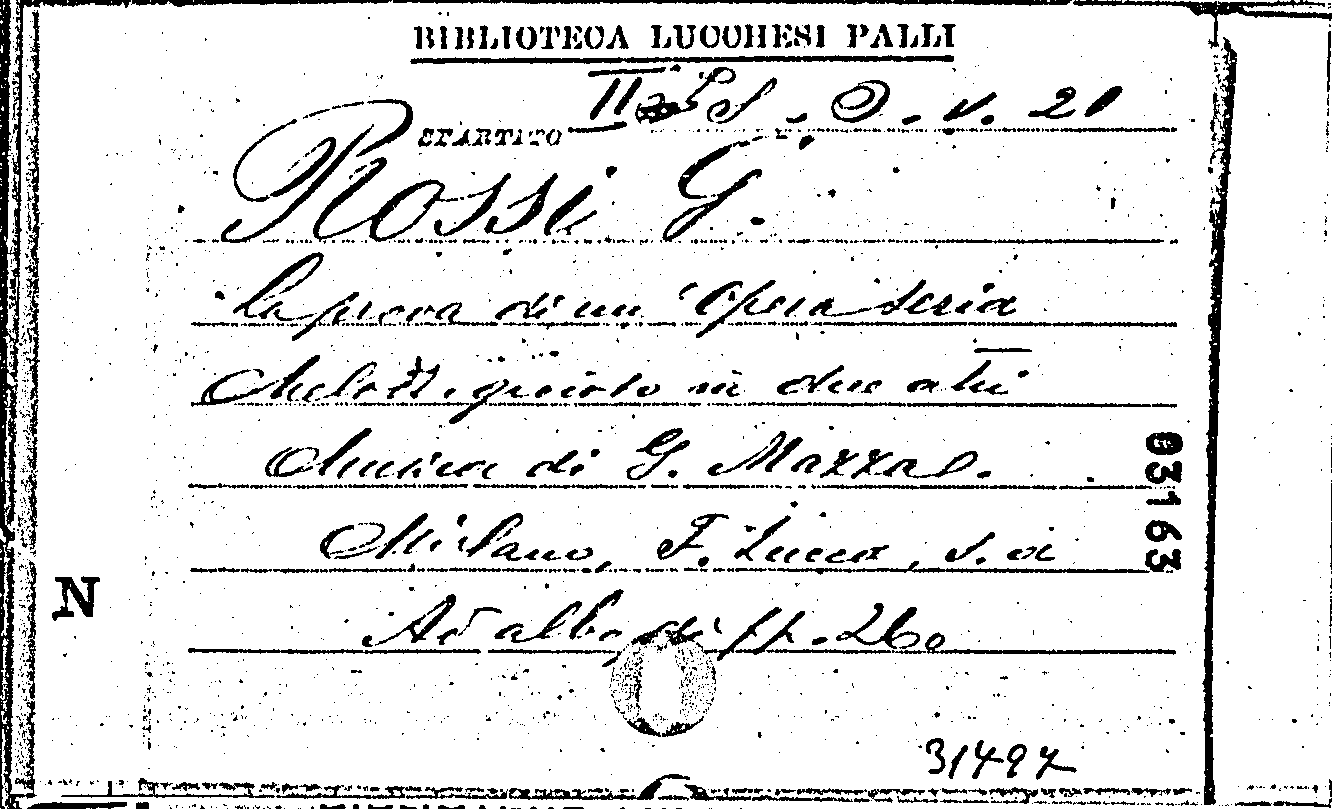 BIBLIOTECA LUCCHESI PALLI
SPARTITO II S. O. V. 21
Rossi G.
La prova di un'Opera seria
Melodr. giocoso in due atti
Musica di G. Mazza.
Milano, F. Lucca, s. a
In albo di pp. 260
03163
N
31497